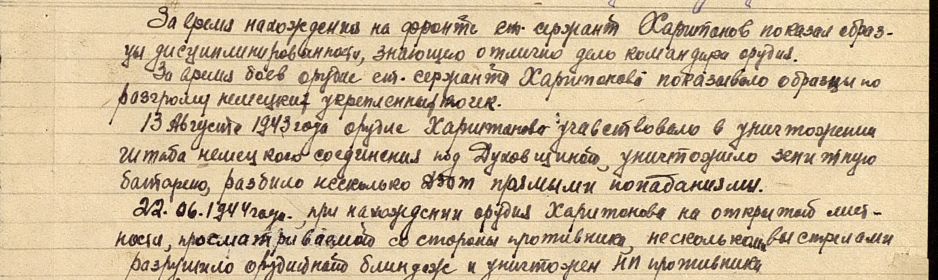 За время нахождения на фронте ст. сержант Харитонов показал образ-
цы дисциплинированности, знающего отлично дело командира орудия.
За время боёв орудие ст. сержанта Харитонова показывало образцы по
разгрому немецких укрепленных точек.
13 Августа 1943 года орудие Харитонова учавствовало в уничтожении
штаба немецкого соединения под Духовщиной, уничтожило зенитную
батарею, разбило несколько дзот прямыми попаданиями.
22.06.1944 года. при нахождении орудия Харитонова на открытой мест-
ности, просматриваемой со стороны противника, несколькими выстрелами
разрушило орудийный блиндаж и уничтожен НП противника